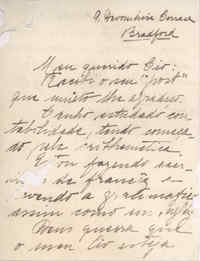 9, Devonshire Terrace
Bradford
Meu querido Tio:
Recebi o seu "post"
que muito lhe agradeço.
Tenho estudado con-
tabilidade, tendo começa-
do pela arithmetica
E 'tou fazendo
de francez e
vendo a
assim como
Deus queira que
o meu tio esteja